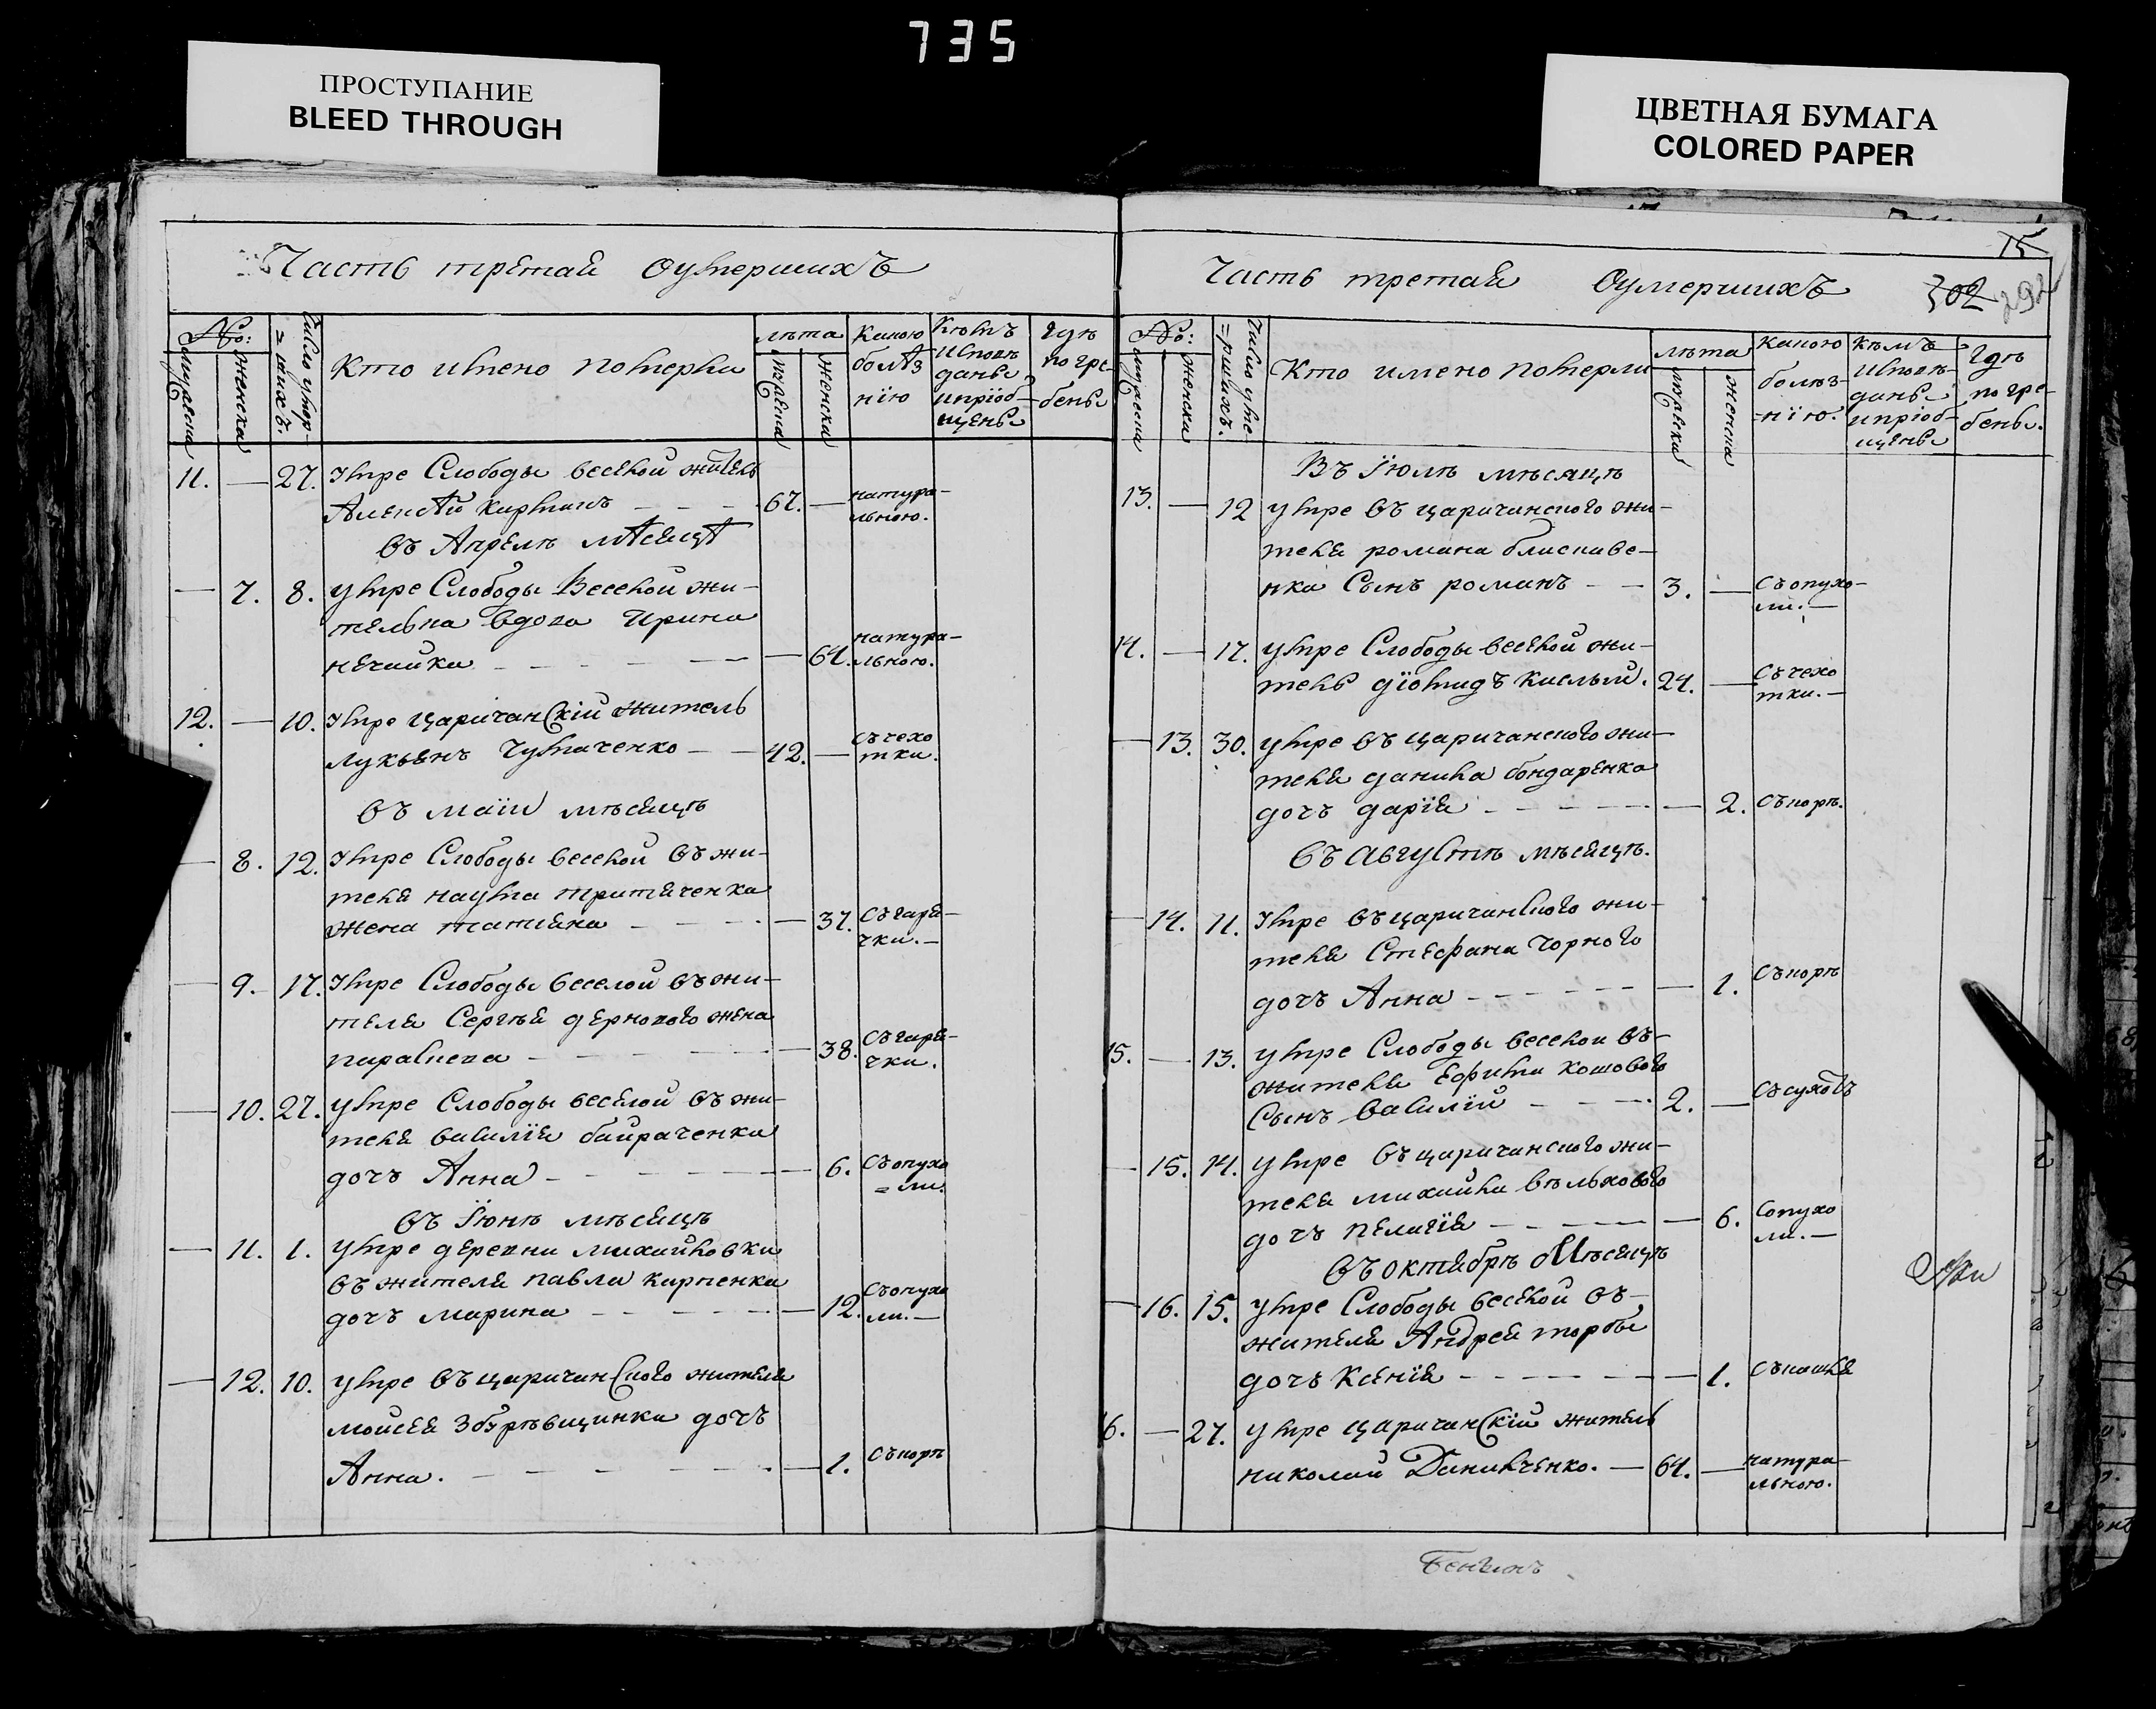 735
ПРОСТУПАНИЕ
BLEED THROUGH
ЦВЕТНАЯ БУМАГА
COLORED PAPER
Часть третай Оумершихъ
No: мужеска женска
Число умер=шихъ.
Кто имено померли
лѣта мужеска женска
Какою болѣзнїю
Кѣмъ исповѣданы и прїобщены
Гдѣ погребены
11. — 27. Умре Слободы веселой житель
Алексѣй Кирпичъ — — — 67. — натура-
льною.
въ Апрелѣ мѣсяцѣ
— 7. 8. умре Слободы Веселой жи-
телька вдова Ирина
нечайка — — — — 64. натура-
льною.
12. — 10. Умре царичанскїй житель
лукьянъ Чумаченко — — 42. — съчехо
тки.
въ маїи мѣсяцѣ
— 8. 12. Умре Слободы веселой въ жи-
теля наума притяченка
жена татияна — — — — 37. съгаря-
чки. —
— 9. — 17. Умре Слободы веселой въ жи-
теля Сергѣя дернового жена
парасїкева — — — — 38. съгаря-
чки.
— 10. 27. умре Слободы веселой въ жи-
теля василїя байраченка
дочъ Анна — — — — 6. съопухо
=ли.
въ Їюнѣ мѣсяцѣ
— 11. 1. умре деревни михайловки
въ жителя павла карпенка
дочъ марина — — — — 12. съопухо
ли. —
— 12. 10. умре въ царичанского жителя
мойсея збурѣвщинки дочъ
Анна. — — — — 1. съкорѣ
Часть третай Оумершихъ
15
302 292
No: мужеска женска
Число уме=ршихъ.
Кто имено померли
лѣта мужеска женска
Какою болѣз-нїю.
Кѣмъ исповѣ-даны и прїоб-щены
Гдѣ погре-бены.
Въ Їюлѣ мѣсяцѣ
13. — 12 умре въ царичанского жи-
теля романа блискаве-
нка Сынъ романъ — — 3. — Съопухо-
ли. —
14. — 17. умре Слободы веселой жи-
тель дїомидъ кислый. 24. — Съчехо
тки. —
— 13. 30. умре въ царичанского жи-
теля данила бондаренка
дочъ дарїя — — — — 2. Съкорѣ.
Въ Августѣ мѣсяцѣ.
— 14. 11. Умре въ царичанского жи-
теля Стефана Чорного
дочъ Анна — — — — 1. Съкорѣ
15. — 13. умре Слободы веселой въ-
жителя Ефима кошового
Сынъ василїй — — — 2. — Съсухотъ
— 15. 14. умре въ царичанского жи-
теля михайла вѣльхового
дочъ пелагїя — — — — 6. Сопухо
ли. —
Въ октябрѣ Мѣсяцѣ
— 16. 15. умре Слободы веселой въ-
жителя Андрея торбы
дочъ Ксенїя — — — — 1. Съкашля
16. — 27. умре царичанскїй житель
николай Данилченко. — 64. — натура-
льною.